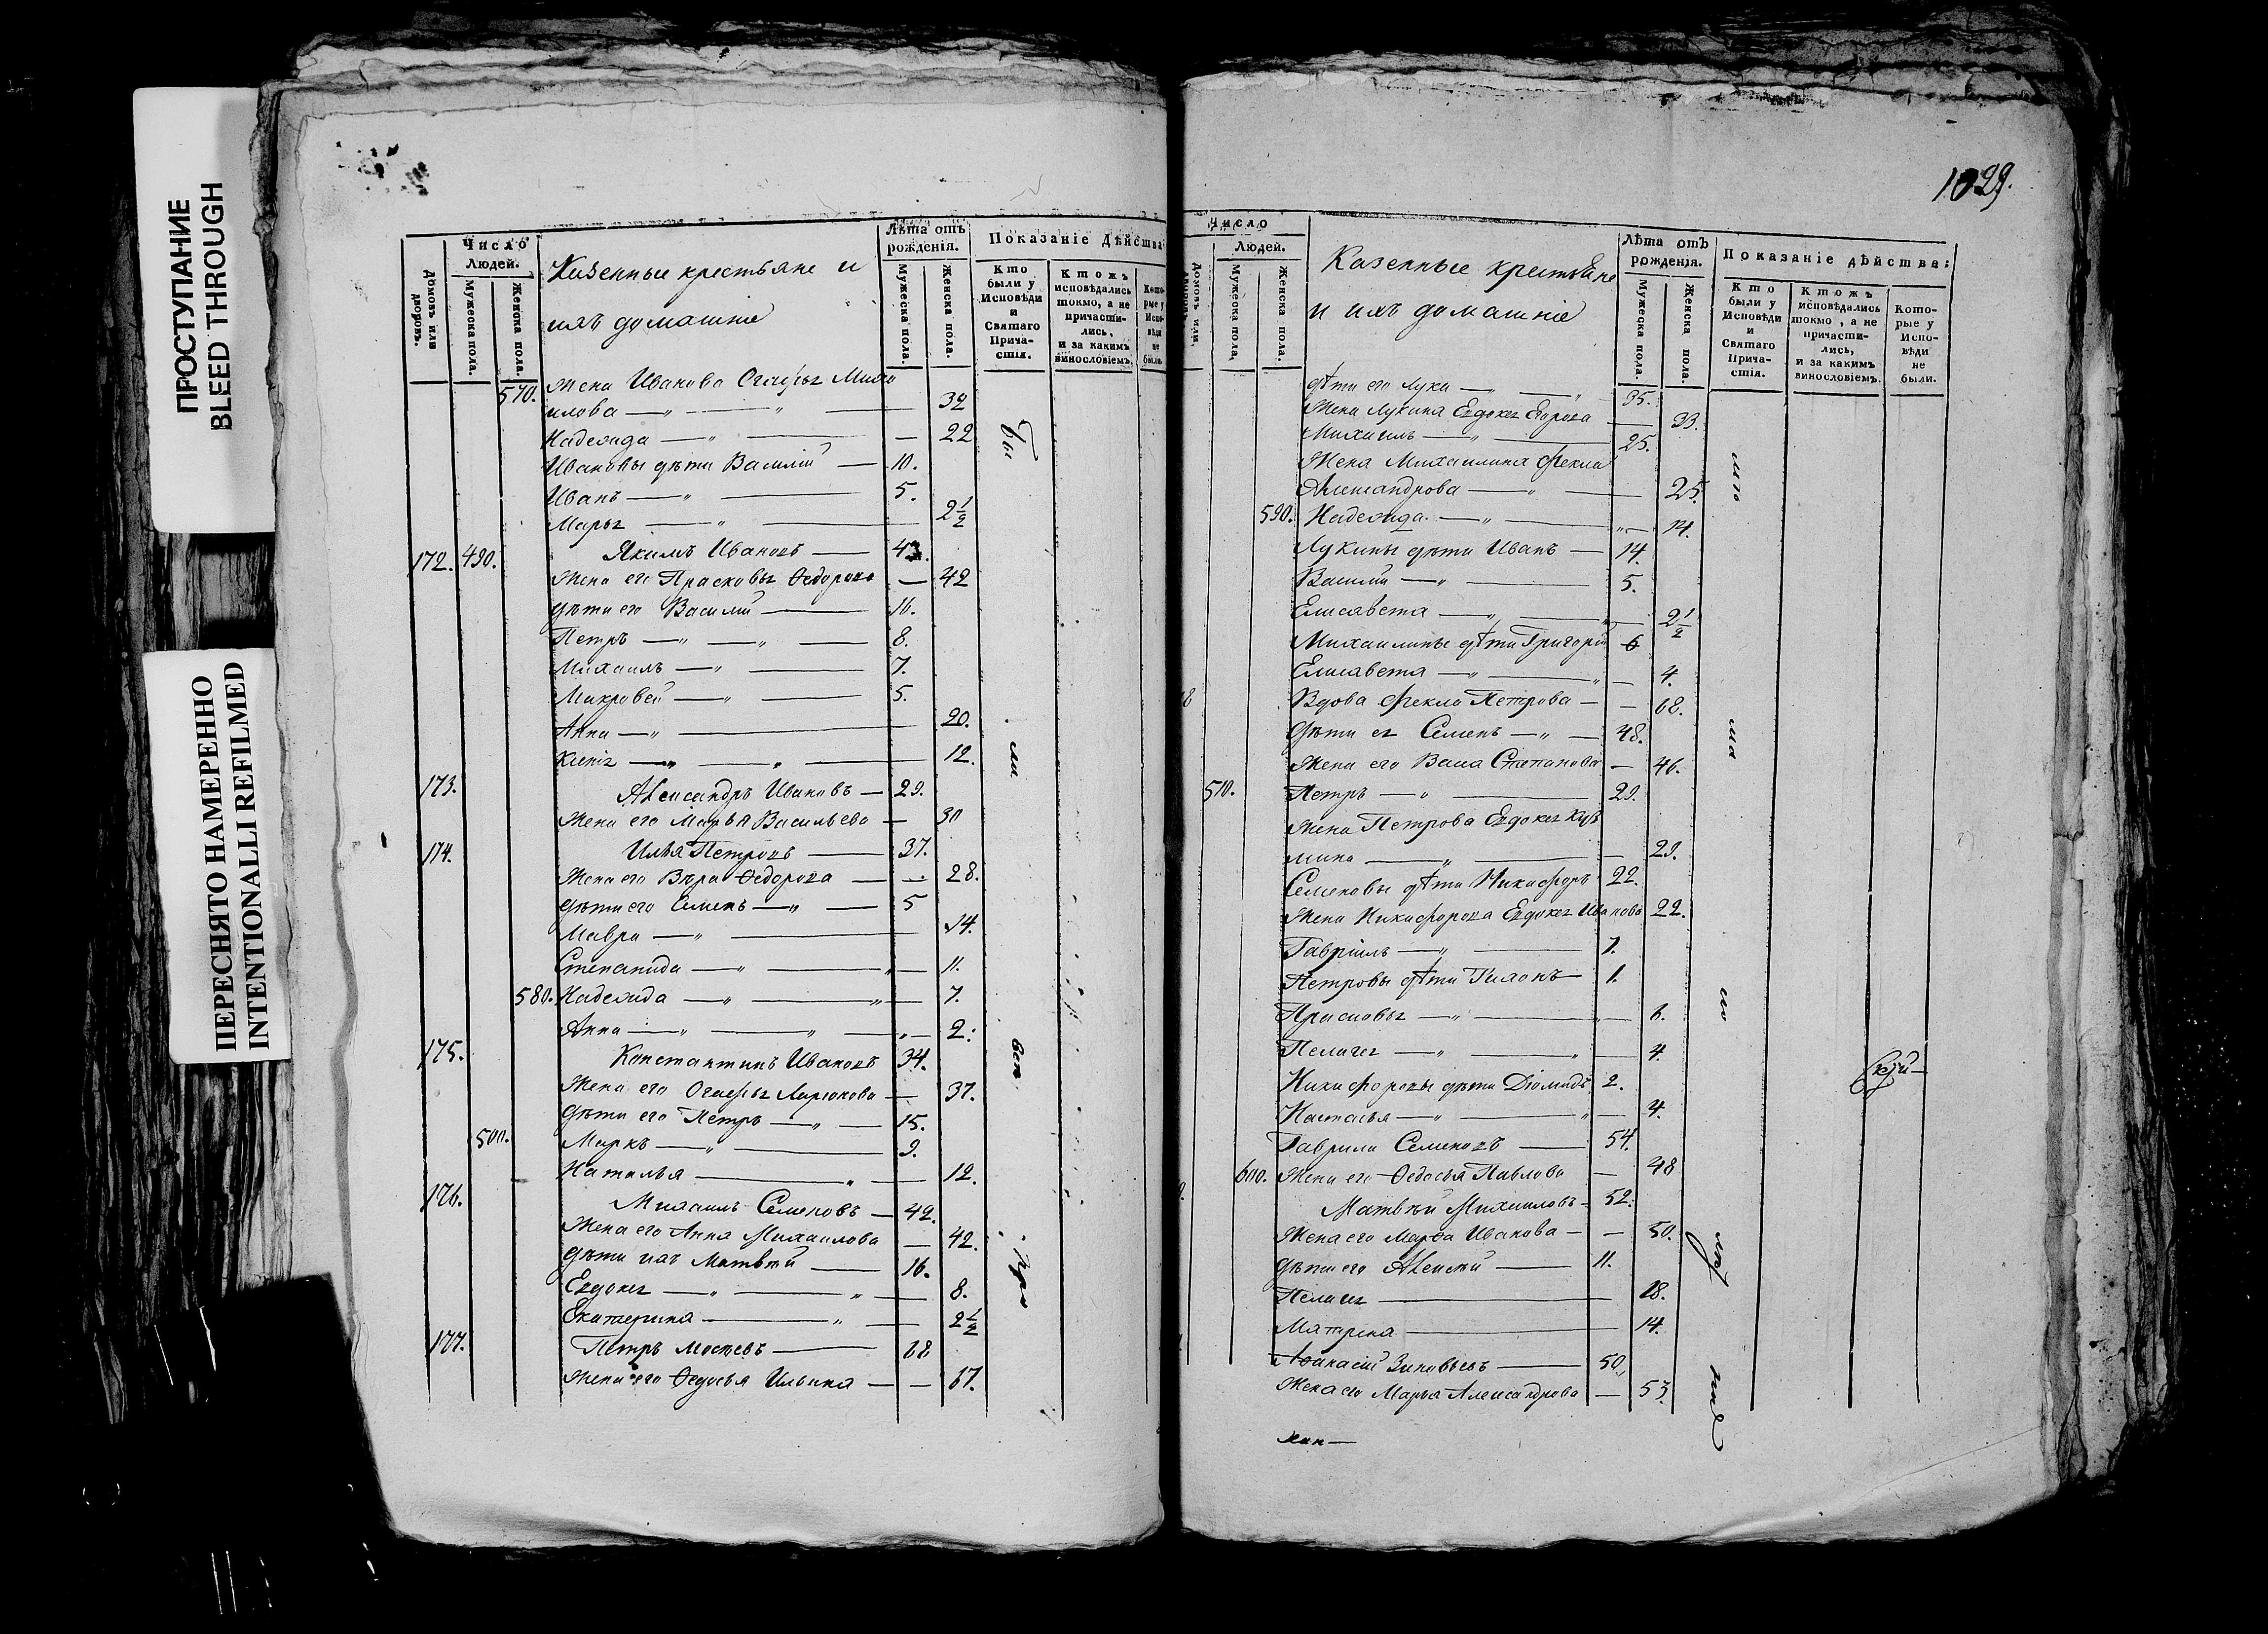 ПРОСТУПАНИЕ
BLEED THROUGH
ПЕРЕСНЯТО НАМЕРЕННО
INTENTIONALLI REFILMED
Домовъ или дворовъ.
Число
Людей.
Мужеска пола.
Женска пола.
Казенные крестьяне и
ихъ домашніе
Лѣта отъ
рожденія.
Мужеска пола.
Женска пола.
Показаніе Дѣйства
Кто были у Исповѣди и Святаго Прича-стія.
Ктожъ исповѣдались токмо, а не причасти-лись, и за какимъ винословіемъ.
Кото-рые у Испо-вѣди не были.
570. Жена Иванова Михаи
лова — 32
Надежда — 22
Ивановы дѣти Василій — 10.
Иванъ — 5.
Марья — 2 1/2
172. 490. Якимъ Ивановъ — 43.
Жена его Прасковья Ѳедорова — 42
дѣти его Василій —
Петръ — 8.
Михаилъ — 7.
5.
Анна — 20.
12.
173. Александръ Ивановъ — 29.
Жена его Марья Васильева — 30
174. Илья Петровъ — 37.
Жена его Вѣра Ѳедорова — 28.
дѣти его Семенъ — 5
Мавра — 14.
Степанида — 11.
580. Надежда — 7.
Анна — 2.
175. Константинъ Ивановъ 34.
Жена его — 37.
Дѣти его Петръ — 15.
500. Маркъ — 9.
Наталья — 12.
176. Михаилъ Семеновъ — 42.
Жена его Анна Михаилова — 42.
дѣти ихъ Матвѣй — 16.
Евдокея — 8.
Екатерина — 2 1/2
177. Петръ
Жена его Ѳедосья Ильина — 67.
бы
ли
1029.
Число
Людей.
Домовъ или
Мужеска пола,
Женска пола.
Казенные крестьяне
и ихъ домашніе
Лѣта отъ
рожденія.
Мужеска пола.
Женска пола.
Показаніе дѣйства:
Кто были у Исповѣди и Святаго Прича-стія.
Ктожъ исповѣдались токмо, а не причасти-лись, и за какимъ винословіемъ.
Кото-рые у Испо-вѣди не были.
дѣти его Лука — 35.
Жена Лукина Евдокея Егорова — 33.
Михаилъ — 25.
Жена Михаилина Фекла
Александрова — 25.
590. Надежда — 14.
Лукины дѣти Иванъ — 14.
Василій — 5.
Елисавета — 2 1/2
Михаилины дѣти Григорій 6
Елисавета — 4.
Вдова Фекла Петрова — 68.
Дѣти ея Семенъ — 48.
Жена его Степанова — 46.
510. Петръ — 29.
Жена Петрова Евдокея Кузь
мина — 29.
Семеновы дѣти Никифоръ 22.
Жена Никифорова Евдокея Иванова 22.
Гавріилъ — 7.
Петровы дѣти — 1.
Прасковья — 6.
Пелагея — 4.
Никифоровы дѣти Діомидъ 2.
Настасья — 4.
Гаврила Семеновъ — 54.
600. Жена его Ѳедосья Павлова — 48
Матвѣй Михаиловъ — 52.
Жена его Марѳа Иванова — 50.
дѣти его Алексѣй — 11.
Пелагея — 18.
Матрена — 14.
Аѳанасій Зиновьевъ — 50.
Жена его Марья Александрова — 53.